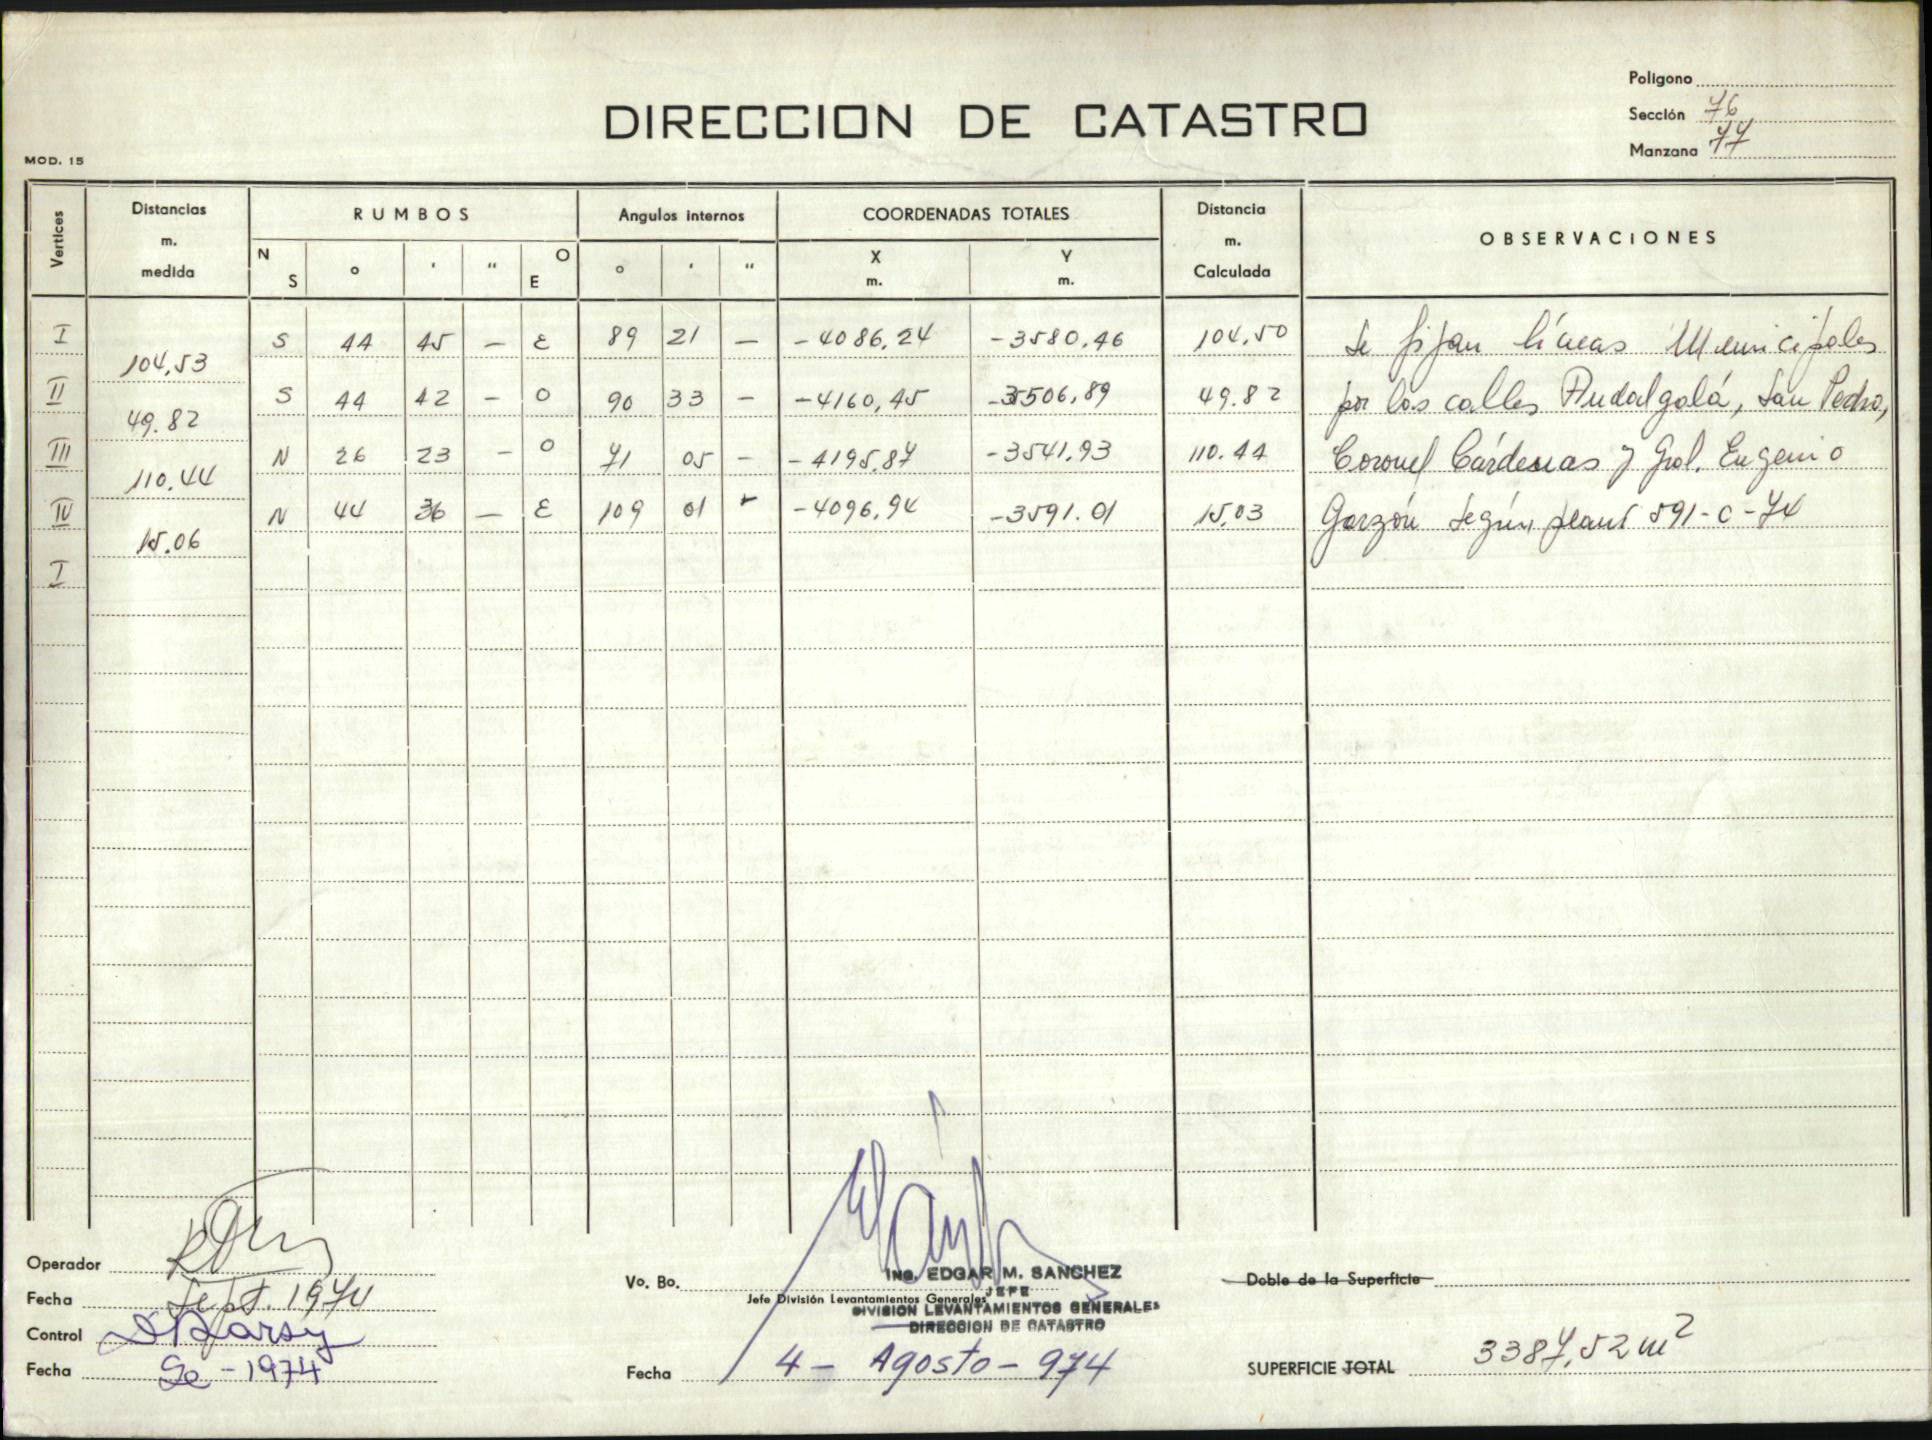 Poligono
DIRECCION DE CATASTRO
Sección 76
Manzana 77
MOD. 15
Vertices
Distancias m. medida
RUMBOS
Angulos internos
COORDENADAS TOTALES
Distancia m. Calculada
OBSERVACIONES
N S ° ' " O E ° ' " X m. Y m.
I S 44 45 — E 89 21 — -4086,24 -3580,46 104,50 Se fijan líneas Municipales
104,53
II S 44 42 — O 90 33 — -4160,45 -3506,89 49.82 por las calles Andalgalá, San Pedro,
49.82
III N 26 23 — O 71 05 — -4195,87 -3541,93 110.44 Coronel Cárdenas y Gral. Eugenio
110.44
IV N 44 36 — E 109 01 -4096,94 -3591.01 15,03 Garzón según 591-C-74
15.06
I
Operador
Fecha Sept. 1974
Control
Fecha - 1974
Vo. Bo.
ING. EDGAR M. SANCHEZ
Jefe División Levantamientos Generales
JEFE
DIVISION LEVANTAMIENTOS GENERALES
DIRECCION DE CATASTRO
Fecha 4 - Agosto - 974
Doble de la Superficie
SUPERFICIE TOTAL 3387,52 m²